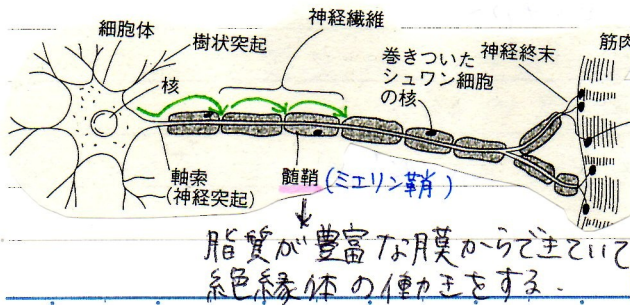 神経繊維
細胞体
樹状突起
核
巻きついた
シュワン細胞
の核
神経終末
筋肉
軸索
(神経突起)
髄鞘(ミエリン鞘)
脂質が豊富な膜からできていて
絶縁体の働きをする.